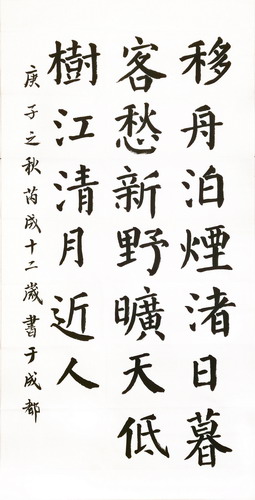 移舟泊煙渚日暮
客愁新野曠天低
樹江清月近人
庚子之秋芮成十二歲書于成都